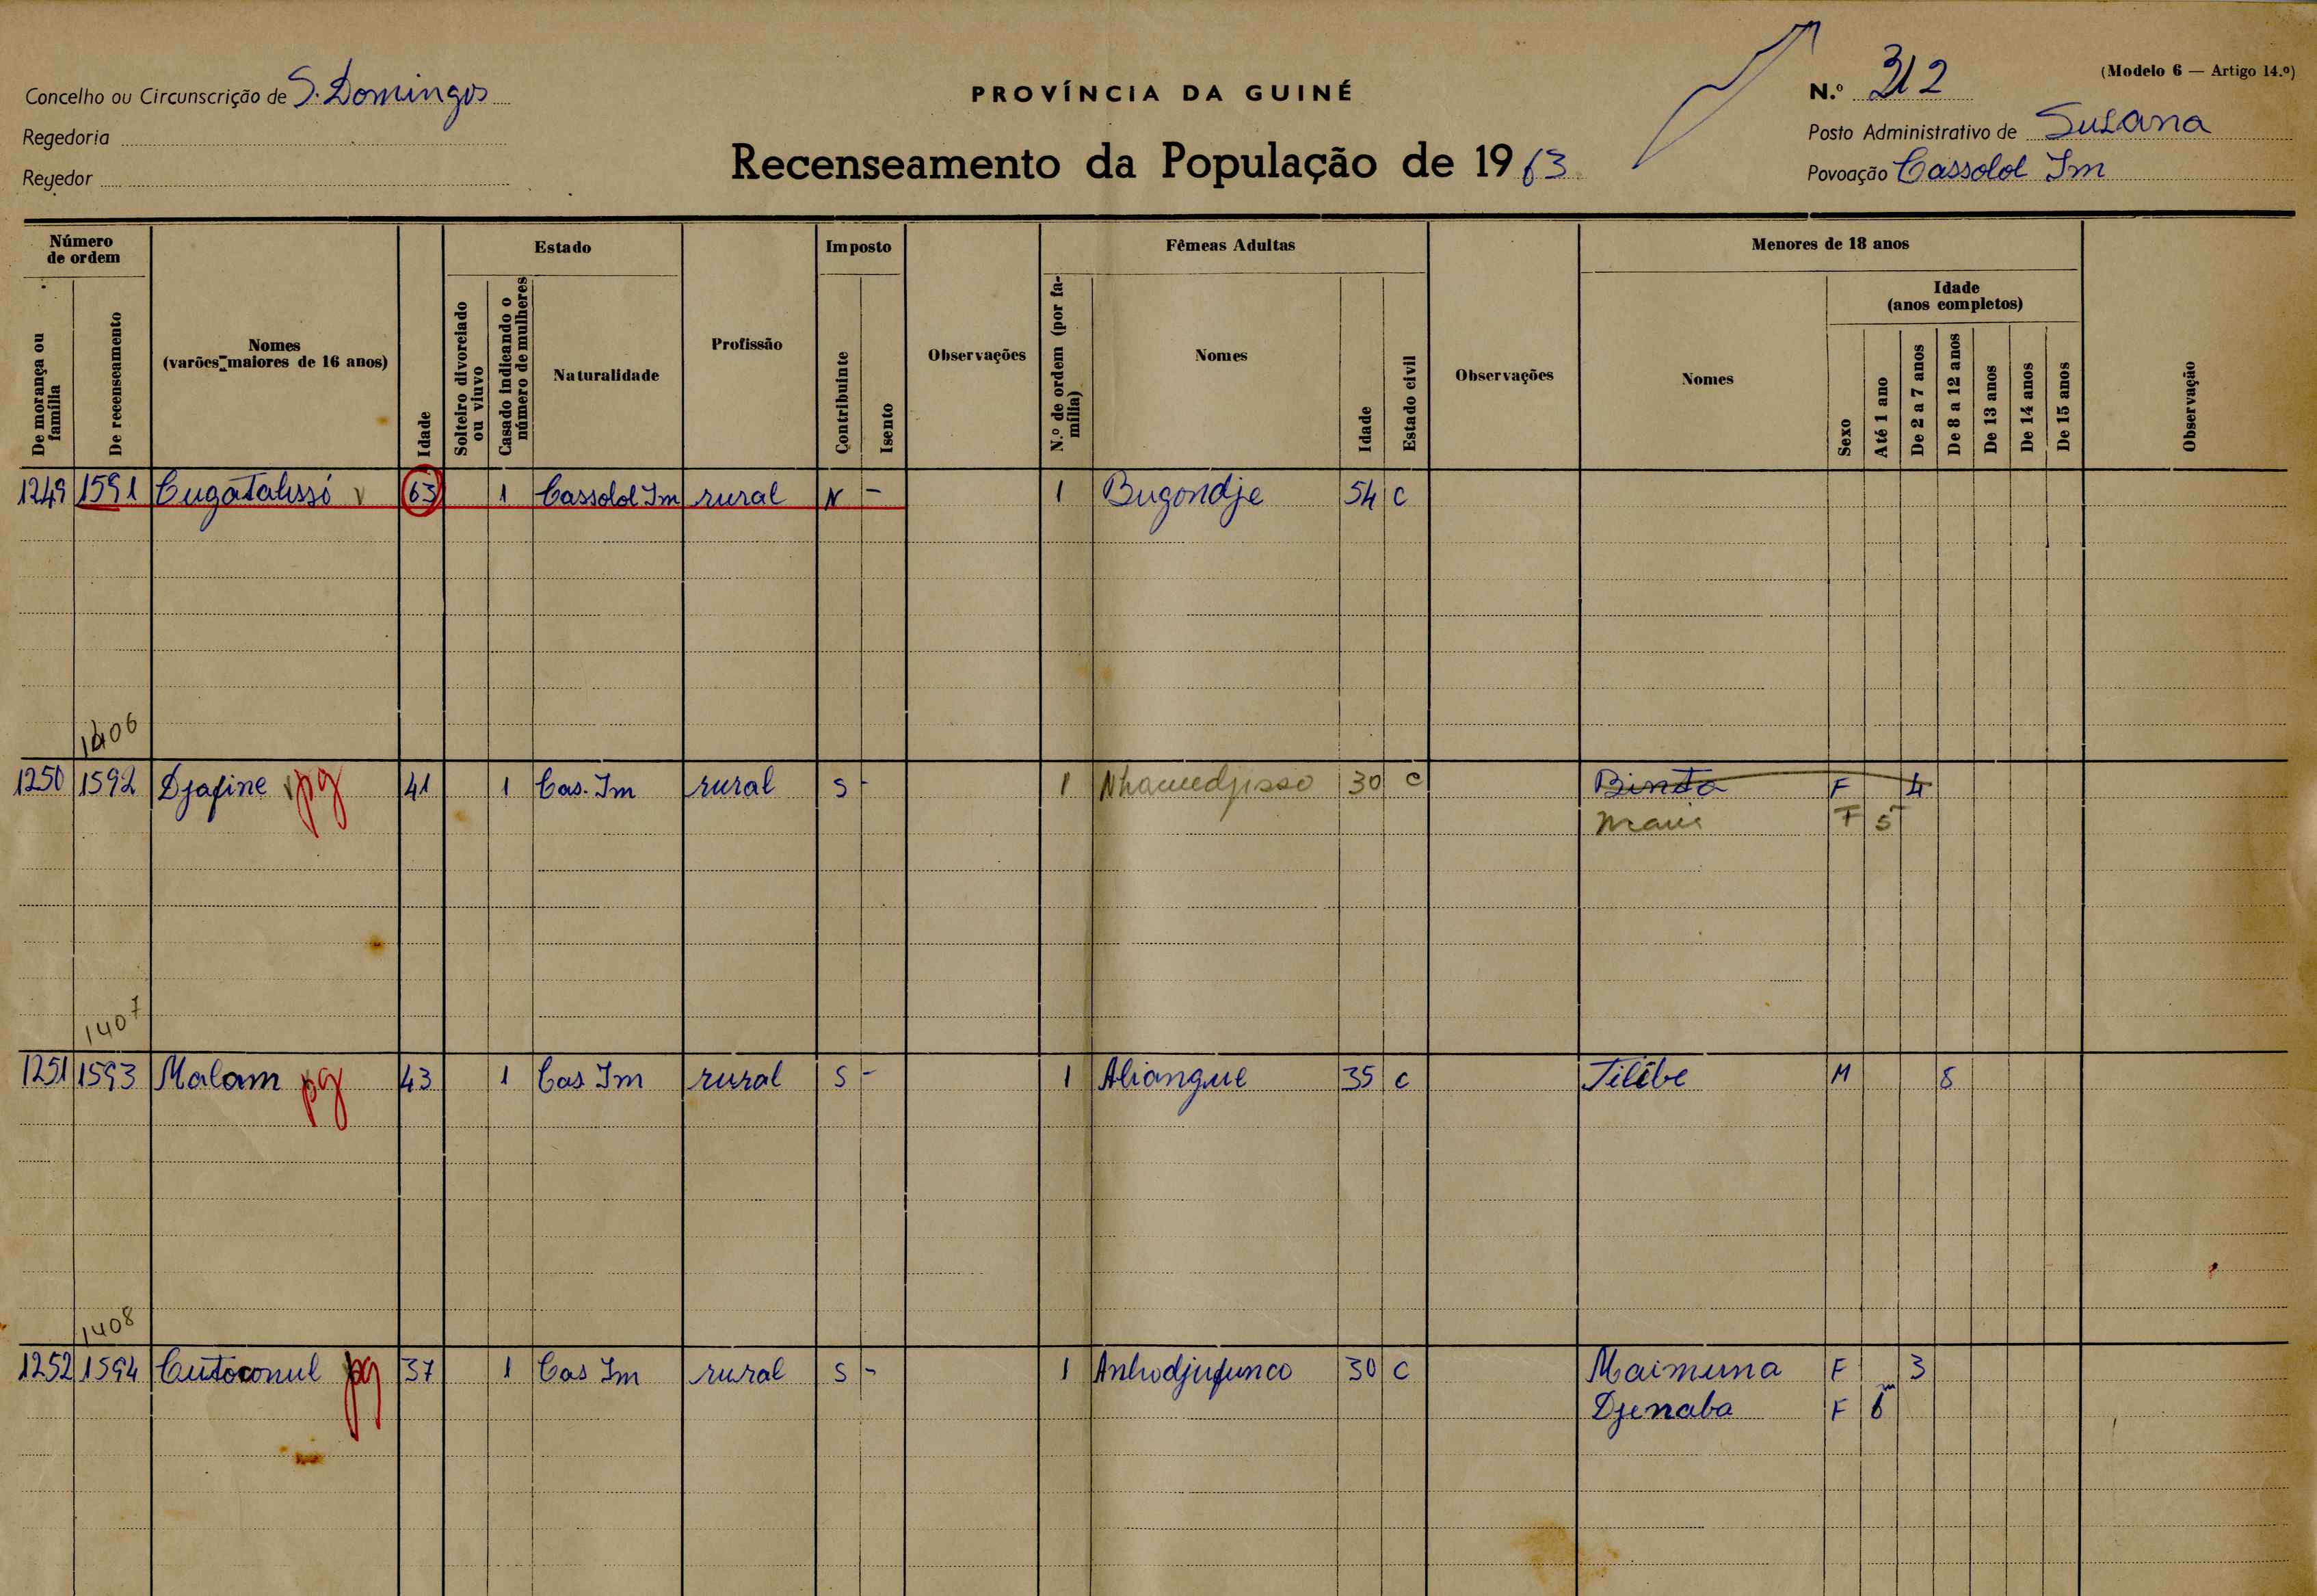 Concelho ou Circunscrição de S. Domingos
Regedoria
Regedor
PROVÍNCIA DA GUINÉ
Recenseamento da População de 1963
(Modelo 6 — Artigo 14.º)
N.º 312
Posto Administrativo de Susana
Povoação Cassolol Im
Número de ordem
De morança ou família
De recenseamento
Nomes
(varões maiores de 16 anos)
Idade
Estado
Solteiro divorciado ou viuvo
Casado indicando o número de mulheres
Naturalidade
Profissão
Imposto
Contribuinte
Isento
Observações
Fêmeas Adultas
N.º de ordem (por família)
Nomes
Idade
Estado civil
Observações
Menores de 18 anos
Nomes
Sexo
Idade
(anos completos)
Até 1 ano
De 2 a 7 anos
De 8 a 12 anos
De 13 anos
De 14 anos
De 15 anos
Observação
1249 1591 Cugatalissó v 63 1 Cassolol Im rural N - 1 Bugondje 54 C
1406
1250 1592 Djafine v pg 41 1 Cas. Im rural S - 1 30 C Binta F 4
F 5
1407
1251 1593 Malam pg 43 1 Cas Im rural S - 1 Aliangue 35 C Tilibe M 8
1408
1252 1594 Cutoconul pg 37 1 Cas Im rural S - 1 Anhodjufunco 30 C Maimuna F 3
Djenaba F 6m